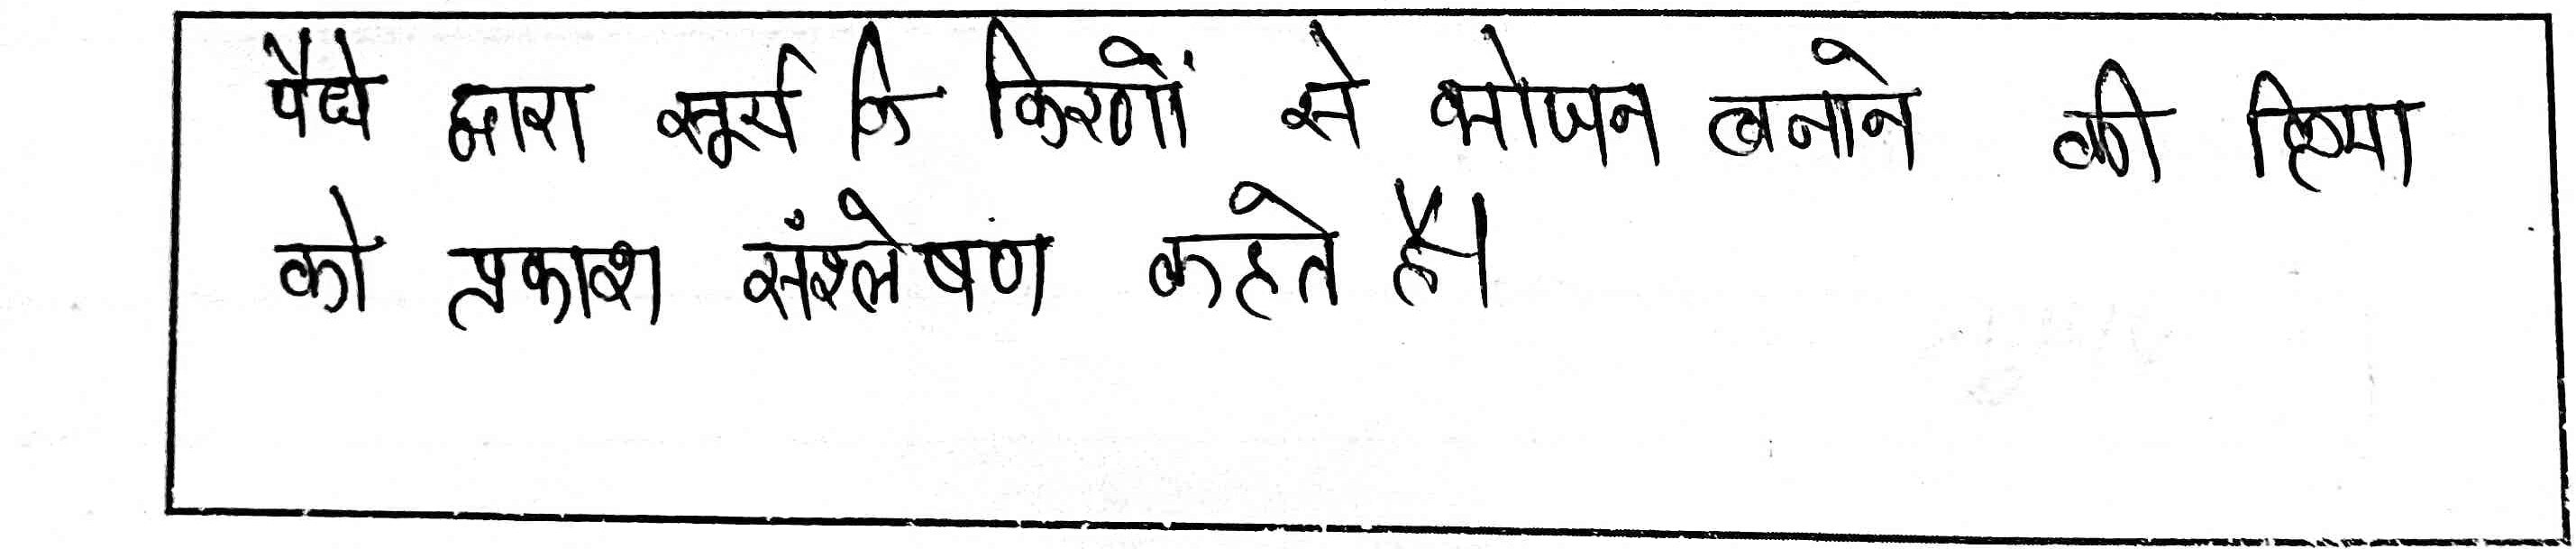 पैधे द्वारा सूर्य कि किरणों से भोजन बनाने की क्रिया
को प्रकाश संश्लेषण कहते है।